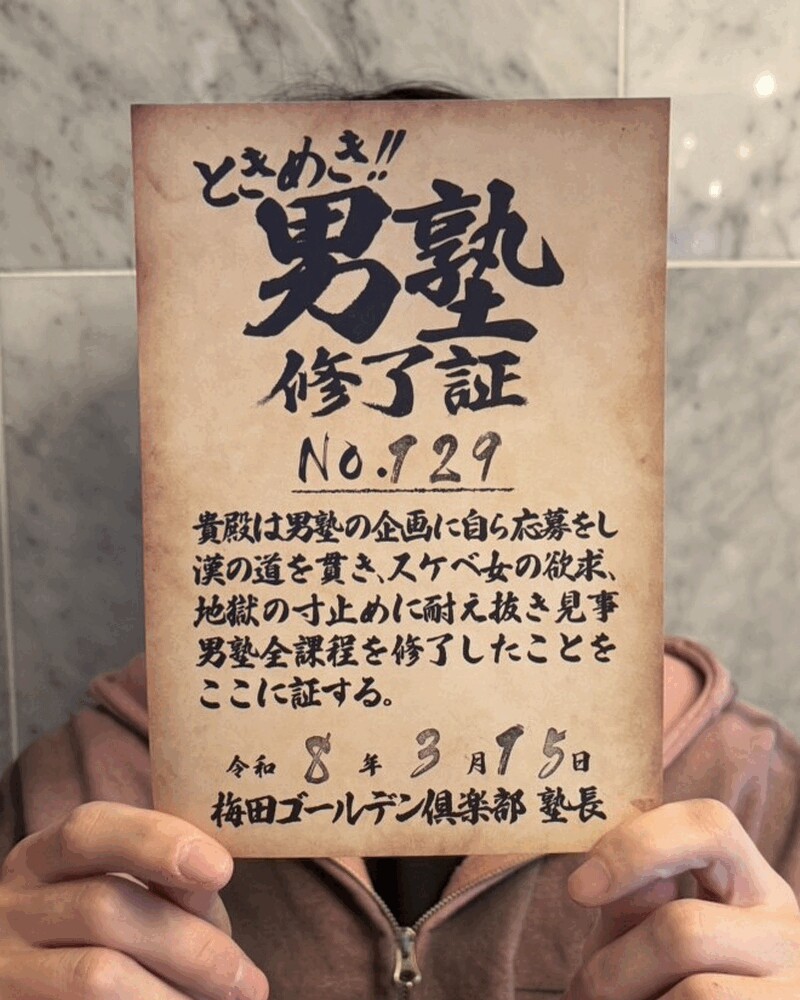 ときめき!!
男塾
修了証
No.129
貴殿は男塾の企画に自ら応募をし
漢の道を貫き、スケベ女の欲求、
地獄の寸止めに耐え抜き見事
男塾全課程を修了したことを
ここに証する。
令和8年3月15日
梅田ゴールデン倶楽部 塾長